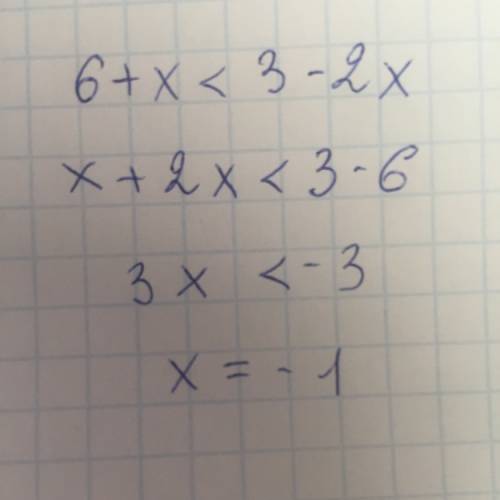 6+x < 3-2x
x+2x < 3-6
3x < -3
x = -1